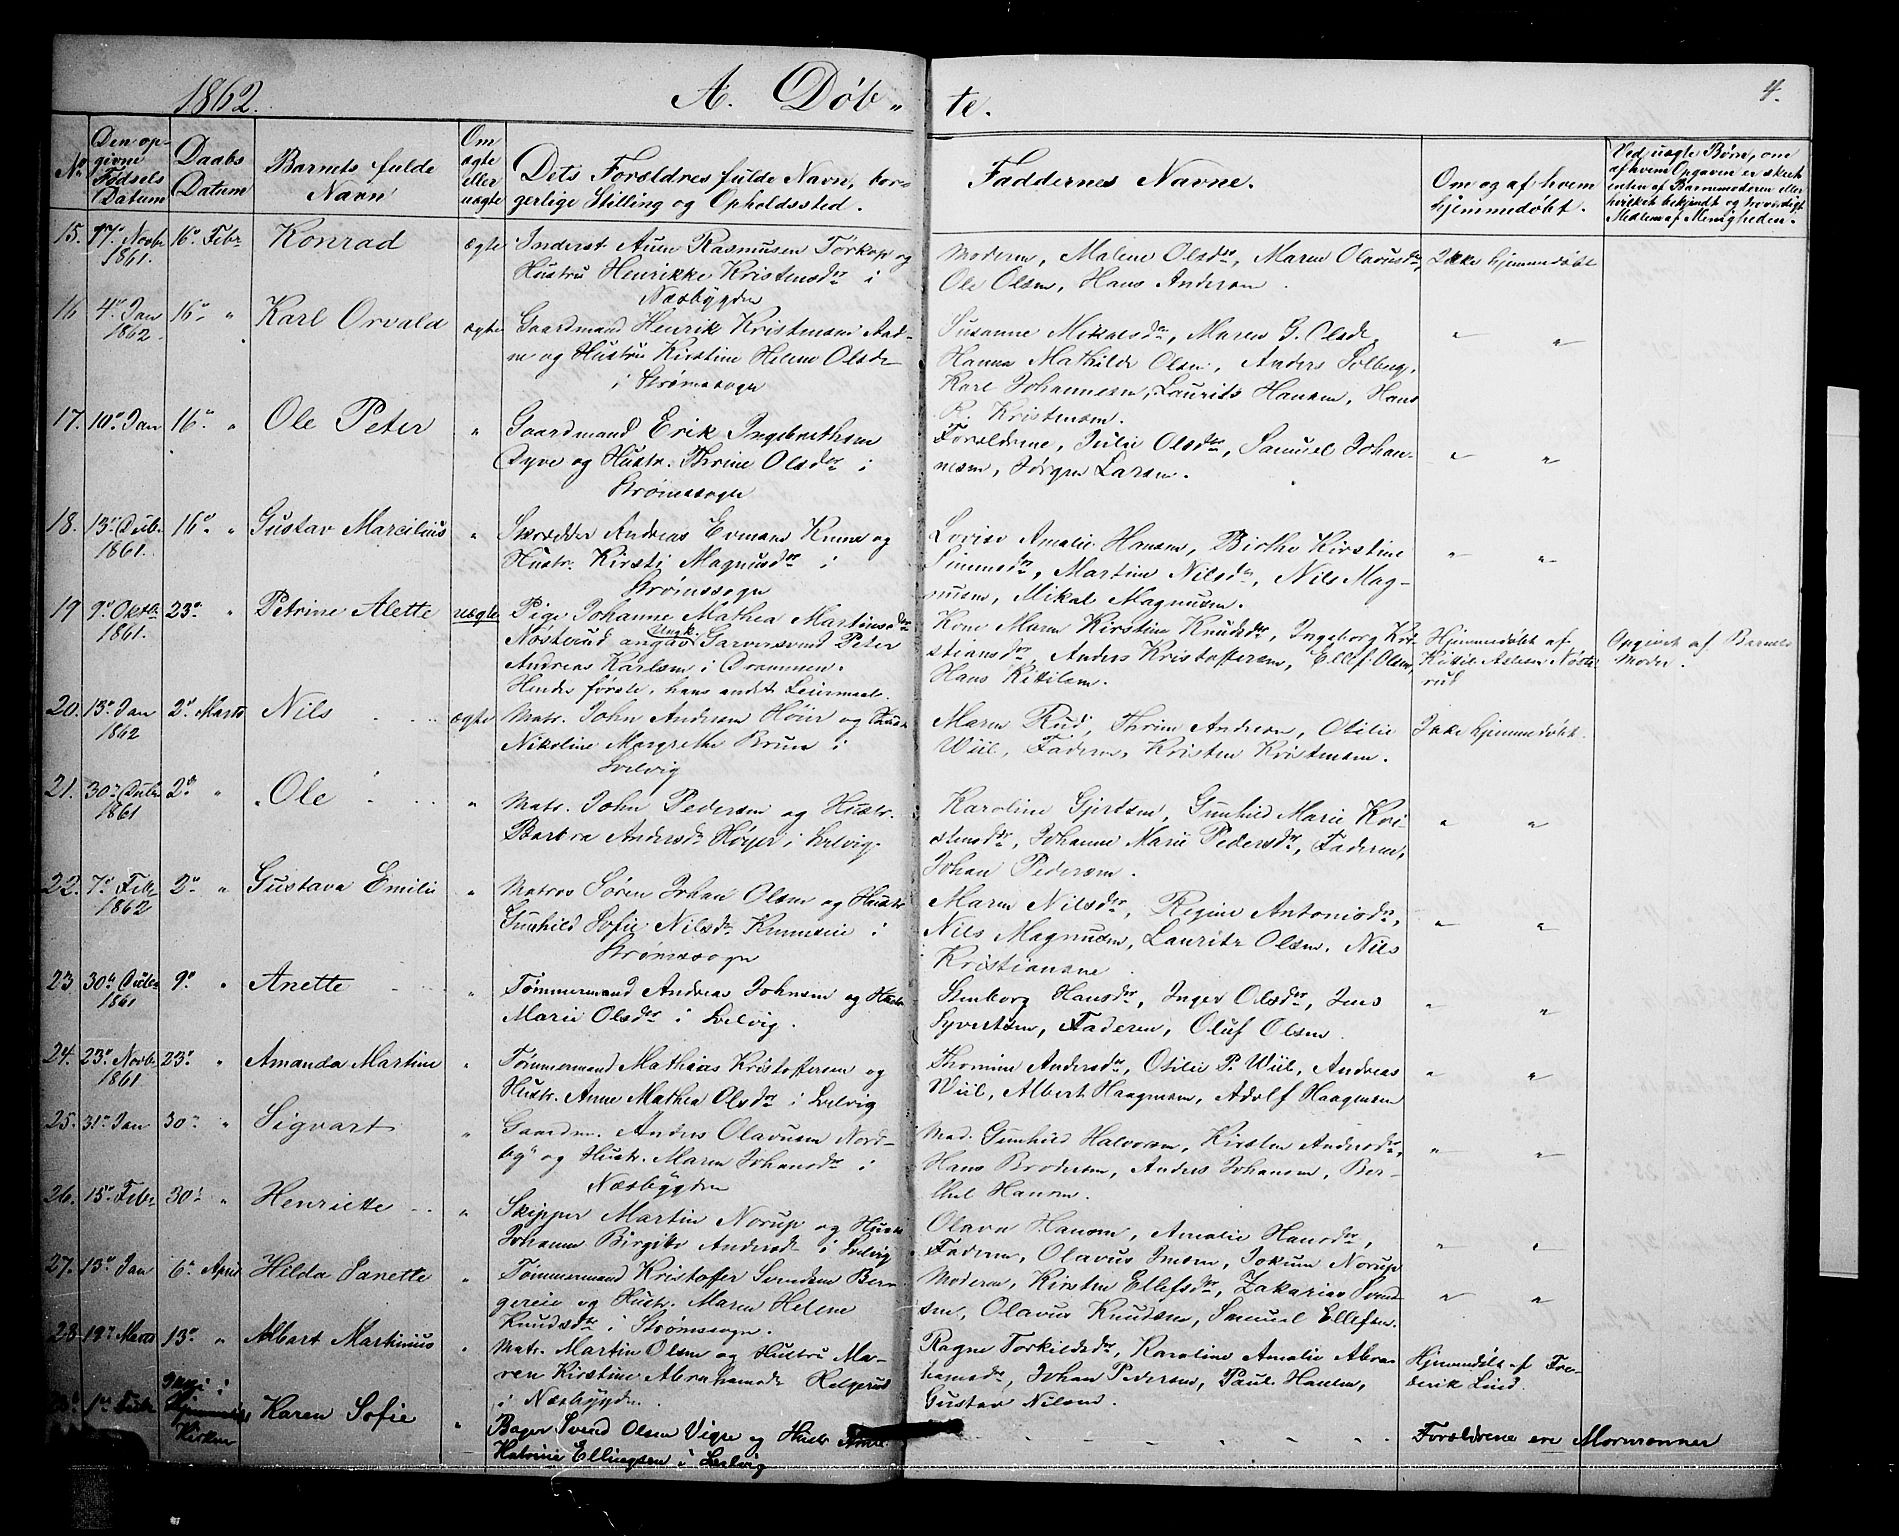 1862.
A. Døb-
te.
4.
No
Den op-
givne
Fødsels
Datum
Daabs
Datum
Barnets fulde
Navn
Om
ægte
eller
uægte
Dets Forældres fulde Navn, bor-
gerlige Stilling og Opholdssted.
Faddernes Navne.
Om og af hvem
hjemmedøbt.
Ved uægte Børn, om
af hvem Opgaven er skeet
enten af Barnemoderen eller
hvilket bekjendt og troværdigt
Medlem af Menigheden.
15. 17de Novbr 16de Febr Konrad ægte Inderst Aune Rasmusen Torkop og
1861.
Hustru Henrikke Kristensdr i
Næsbygden
Moderen, Malene Olsdr, Maren Olavusdr,
Ole Olsen, Hans Andersen.
Ikke hjemmedøbt
16 4de Jan 16de " Karl Orvald ægte Gaardmand Henrik Kristensen
1862.
og Hustru Kirstine Helene Olsdr
i Strømssogn
Susanne Mikaelsdr, Maren G. Olsdr,
Hanna Mathilde Olsen, Anders Solberg,
Karl Johannesen, Laurits Hansen, Hans
R. Kristensen.
" "
17. 10de Jan 16de " Ole Peter " Gaardmand Erik Ingebrethsen
og Hustr. Thrine Olsdr i
Strømssogn
Forældrene, Julie Olsdr, Samuel Johan-
nesen, Jørgen Larsen.
" "
18. 13de Decbr 16de " Gustav Marcilius " Skrædder Andreas Evensen og
1861.
Hustr. Kirsti Magnusdr i
Strømssogn
Lovise Amalie Hansen, Birthe Kirstine
Simensdr, Martine Nilsdr, Nils Mag-
nusen, Mikal Magnusen.
" "
19 9de Oktbr 23de " Petrine Alette uægte Pige Johanne Mathea Martinsdr
1861.
Nøsterud angav Ungk. Garversvend Peter
Andreas Karlsen i Drammen.
Hendes første, hans andet Leiermaal.
Kone Maren Kirstine Knudsdr, Ingeborg Kri-
stiansdr, Anders Kristoffersen, Ellef Olsen,
Hans Kittilsen.
Hjemmedøbt af
Kittil Nøste-
rud
Opgivet af Barnets
Moder.
20. 13de Jan 2den Marts Nils ægte Matr. John Andersen Høier og Hustr.
1862
Nikoline Margrethe Bruun i
Svelvig
Maren Rud, Thrine Andersen, Otilie
Wiil, Faderen, Kristen Kristensen.
Ikke hjemmedøbt.
21. 30te Decbr 2den " Ole " Matr. John Pedersen og Hustr.
1861
Barbra Andersdr Høyer i Svelvig.
Karoline Gjertsen, Gunhild Marie Kri-
stensdr, Johanne Marie Pedersdr, Faderen,
Johan Pedersen.
" "
22. 7de Febr 2den " Gustava Emilie " Matros Søren Johan Olsen og Hustr.
1862
Gunhild Sofie Nilsdr i
Strømssogn
Maren Nilsdr, Regine Antonisdr,
Nils Magnusen, Lauritz Olsen, Nils
Kristiansen.
" "
23 30te Decbr 9de " Anette " Tømmermand Andreas Johnsen og Hustr.
1861
Marie Olsdr i Svelvig.
Stenborg Hansdr, Inger Olsdr, Jens
Syvertsen, Faderen, Oluf Olsen.
" "
24. 23de Novbr 23de " Amanda Martine " Tømmermand Mathias Kristoffersen og
1861
Hustr. Anne Mathea Olsdr i Svelvig
Thomine Andersdr, Otilie P. Wiil, Andreas
Wiil, Albert Haagensen, Adolf Haagensen
" "
25. 31te Jan 30te " Sigvart " Gaardm. Anders Olavusen Nord-
by og Hustr. Maren Johansdr i
Næsbygden
Mad. Gunhild Halvorsen, Kirsten Andersdr,
Hans Brodersen, Anders Johansen, Ber-
thel Hansen.
" "
26. 15de Febr 30te " Henriette " Skipper Martin Norup og Hustr.
Johanne Birgitte Andersdr i Svelvig
Olava Hansen, Amalie Hansdr,
Faderen, Olavus Jensen, Jokum Norup
" "
27. 13de Jan 6te April Hilda Janette " Tømmermand Kristoffer Svendsen Ber-
gereie og Hustr. Maren Helene
Knudsdr i Strømssogn.
Moderen, Kirsten Ellefsdr, Zakarias Svend-
sen, Olavus Knudsen, Samuel Ellefsen.
" "
28 19de Marts 13de " Albert Martinius " Matr. Martin Olsen og Hustru Ma-
ren Kirstine Abrahamsdr Helgerud
i Næsbygden.
Ragne Torkildsdr, Karoline Amalie Abra-
hamsdr, Johan Pedersen, Paul Hansen,
Gustav Nilsen.
Hjemmedøbt af Fre-
derik Lind.
1ste
Ikke i
Kirken
Karen Sofie " Bager Svend Olsen Vigre og Hustr. Anne
Katrine Ellingsen i Svelvig
Forældrene ere Mormonner